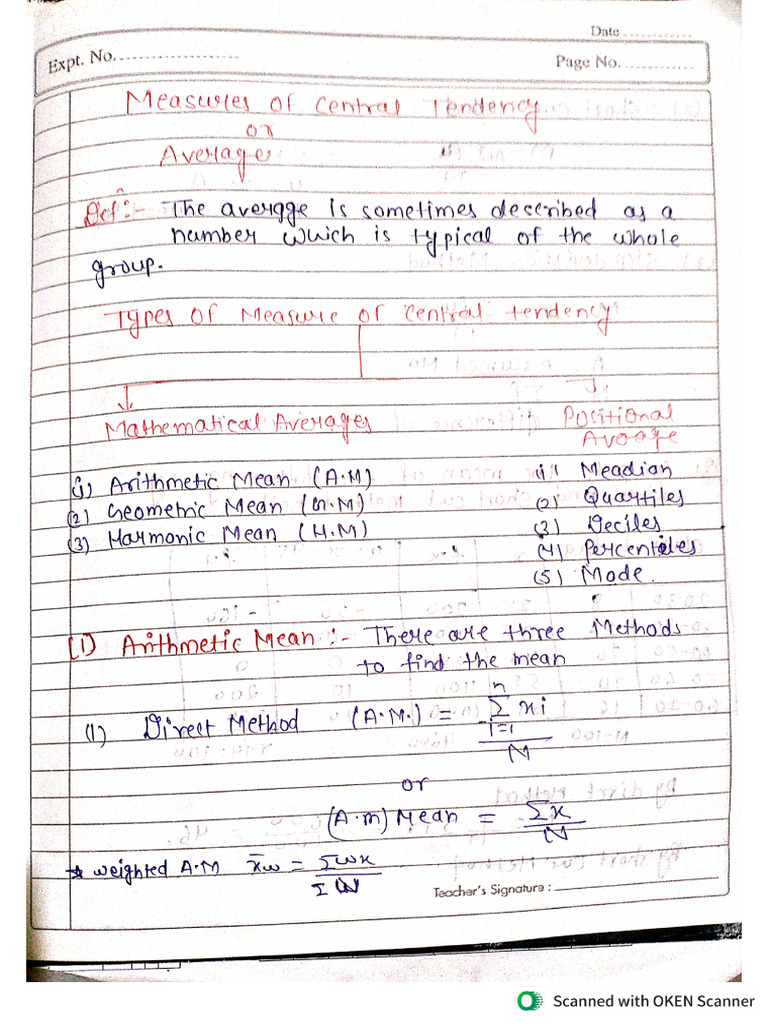 Date
Expt. No.
Page No.
Measures of Central Tendency
or
Average
Def:- The averqge is sometimes described as a
number which is typical of the whole
group.
Types of Measure of Central tendency
Mathematical Averages
Positional
Avoage
(1) Arithmetic Mean (A.M)
(2) Geometric Mean (G.M)
(3) Harmonic Mean (H.M)
(1) Meadian
(2) Quartiles
(3) Deciles
(4) Percentiles
(5) Mode.
(1) Arithmetic Mean :- There are three Methods
to find the mean
(1) Direct Method (A.M.) = n Σ i=1 xi / N
or
(A.m) Mean = Σx / N
* weighted A.M x̄w = Σwx / Σw
Teacher's Signature :
Scanned with OKEN Scanner